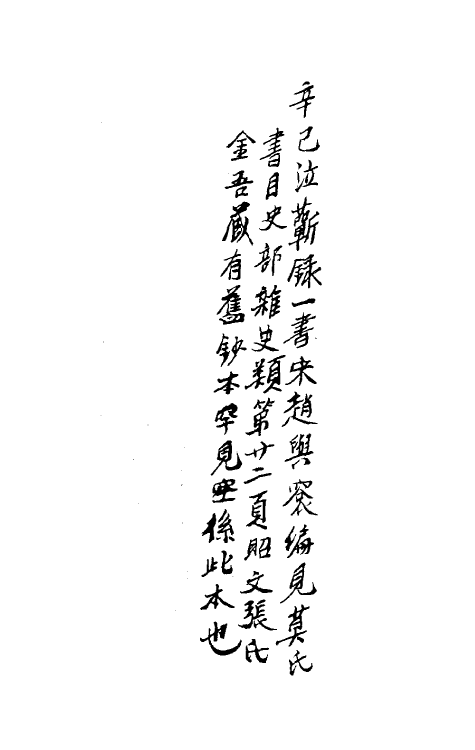 辛巳泣蘄録一書宋趙與𥮅編見莫氏
書目史部雜史類第廿二頁昭文張氏
金吾藏有舊鈔本罕見當係此本也